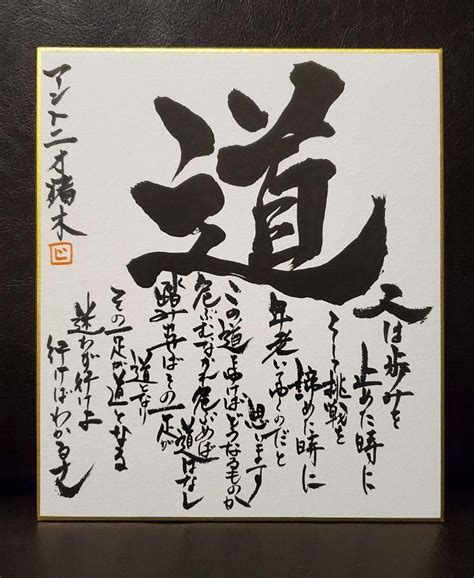 道
人は歩みを
止めた時に
そして挑戦を
諦めた時に
年老いゆくのだと
思います
この道をゆけばどうなるものか
危ぶむなかれ危ぶめば
道はなし
踏み出せばその一足が
道となり
その一足が道となる
迷わず行けよ
行けばわかるさ
アントニオ猪木